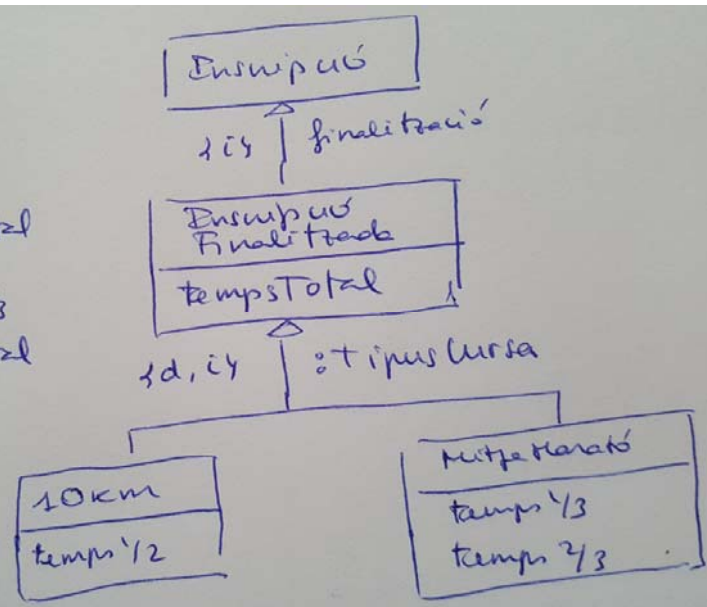 Inscripció
{i} finalització
Inscripció
Finalitzada
tempsTotal
{d, i} :tipusCursa
10km
temps 1/2
Mitja Marató
temps 1/3
temps 2/3